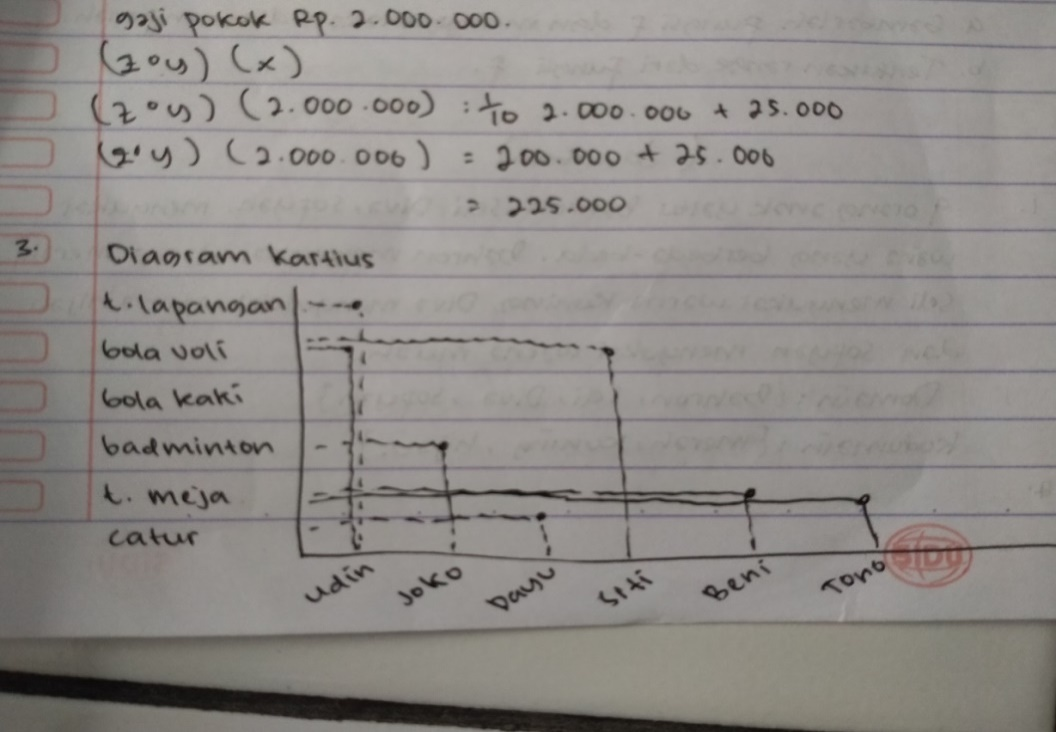 gaji pokok Rp. 2.000.000.
(z∘y) (x)
(z∘y) (2.000.000) : 1/10 2.000.000 + 25.000
(z∘y) (2.000.000) = 200.000 + 25.000
= 225.000
3. Diagram Kartius
t. lapangan
bola voli
bola kaki
badminton
t. meja
catur
Udin Joko Dayu Siti Beni Tono
SIDU